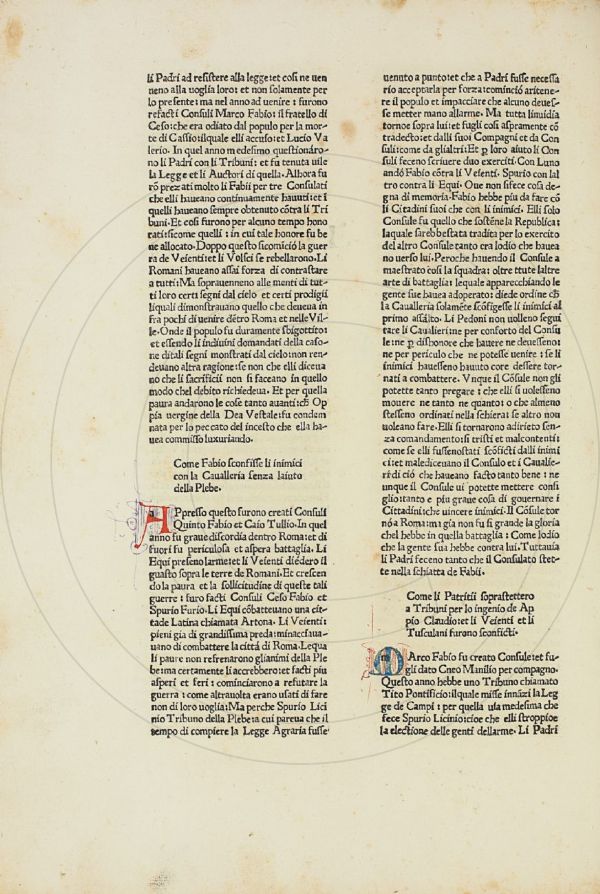 li Padri ad resistere alla legge: et cosi ne uen
neno alla uoglia loro: et non solamente per
lo presente: ma nel anno ad uenire: furono
refacti Consuli Marco Fabio: il fratello di
Ceso: che era odiato dal populo per la mor
te di Cassio: il quale elli accuso: et Lucio Va
lerio. In quel anno medesimo questionáro
no li Padri con li Tribuni: et fu tenuta uile
la Legge et li Auctori di quella. Alhora fu
rō prezati molto li Fabii per tre Consulati
che elli haueano continuamente hauuti: et i
quelli haueano sempre obtenuto cōtra li Tri
buni. Et cosi furono per alcuno tempo hono
rati: si come quelli: in cui tale honore fu be
ne allocato. Doppo questo si comiciò la guer
ra de Veienti: et li Volsci se rebellarono. Li
Romani haueano assai forza di contrastare
a tutti: Ma soprauenneno alle menti di tut
ti loro certi segni dal cielo et certi prodigii
li quali dimonstrauano quello che deueua in
fra pochi di uenire dētro Roma et nelle Vil
le. Onde il populo fu duramente sbigottito:
et essendo li indiuini domandati della caso
ne di tali segni monstrati dal cielo: non ren
deuano altra ragione: se non che elli diceua
no che li sacrificii non si faceano in quello
modo chel debito richiedeua. Et per quella
paura andarono le cose tanto auanti: ch̄ Op
pia uergine della Dea Vestale: fu condem
nata per lo peccato del incesto che ella ha
uea commisso luxuriando.
Come Fabio sconfisse li inimici
con la Cauallería senza laiuto
della Plebe.
APpresso questo furono creati Consuli
Quinto Fabio et Caio Tullio. In quel
anno fu graue discordia dentro Roma: et di
fuori fu periculosa et aspera battaglia. Li
Equi preseno larme: et li Veienti diedero il
guasto sopra le terre de Romani. Et crescen
do la paura et la sollicitudine di queste tali
guerre: furo facti Consuli Ceso Fabio et
Spurio Furio. Li Equi cōbatteuano una cit
tade Latina chiamata Artona. Li Veienti:
pieni gia di grandissima preda: minaccfaua-
uano di combattere la cittá di Roma. Lequa
li paure non refrenarono gli animi della Ple
be: ma certamente li accrebbero: et facti piu
asperi et feri: cominciarono a refutare la
guerra: come altrauolta erano usati di fare
non di loro uoglia: Ma perche Spurio Lici
nio Tribuno della Plebe: a cui parcua che il
tempo di compiere la Legge Agraria fusse
uenuto a punto: et che a Padri fusse necessa
rio acceptarla per forza: cominciò a ritene-
re il populo et impacciare che alcuno deues-
se metter mano allarme. Ma tutta linuidia
tornoe sopra lui: et fugli cosi aspramente cō
tradecto: et dalli suoi Compagni et da Con
suli: come da gli altri: Et ꝑ loro aiuto li Con
suli feceno scriuere duo exerciti. Con Luno
andó Fabio cōtra li Veienti. Spurio con lal
tro contra li Equi. Oue non si fece cosa de
gna di memoria. Fabio hebbe piu da fare cō
li Cittadini suoi che con li inimici. Elli solo
Consule fu quello che sostēne la Republica:
la quale sarebbe stata tradita per lo exercito
del altro Consule tanto era lodio che hauea
no uerso lui. Peroche hauendo il Consule a
maestrato cosi la squadra: oltre ttute laltre
arte di battaglia: le quale apparecchiando le
gente sue hauea adoperato: diede ordine ch̄
la Caualleria solamēte scōfigesse li inimici al
primo assalto. Li Pedoni non uolleno segui
tare li Caualieri: ne per conforto del Consu
le: ne ꝑ dishonore che hauere ne deuesseno:
ne per periculo che ne potesse uenire: se li
inimici hauesseno hauuto core dessere tor-
nati a combattere. Vnque il Cōsule non gli
potette tanto pregare: che elli si uolesseno
mouere ne tanto ne quanto: o che almeno
stesseno ordinati nella schiera: se altro non
uoleano fare. Elli si tornarono adirieto sen-
za comandamento: si tristi et malcontenti:
come se elli fusseno stati scōficti dalli inimi
ci: et malediceuano il Consulo et i Caualie-
ri di ció che haueano facto tanto bene: ne
unque il Consule ui potette mettere consi
glio: tanto e piu graue cosa di gouernare i
Cittadini: che uincere inimici. Il Cōsule tor
nó a Roma: ma gia non fu si grande la gloria
chel hebbe in quella battaglia: Come lodio
che la gente sua hebbe contra lui. Tuttauia
li Padri feceno tanto che il Consulato stet-
te nella schiatta de Fabii.
Come li Patritii soprastettero
a Tribuni per lo ingenio de Ap
pio Claudio: et li Veienti et li
Tusculani furono sconficti.
MArco Fabio fu creato Consule: et fu-
gli dato Cneo Manilio per compagno.
Questo anno hebbe uno Tribuno chiamato
Tito Pontificio: il quale misse innāzi la Leg
ge de Campi: per quella usa medesima che
fece Spurio Licinio: cioe che elli stroppioe
la electione delle genti dellarme. Li Padri